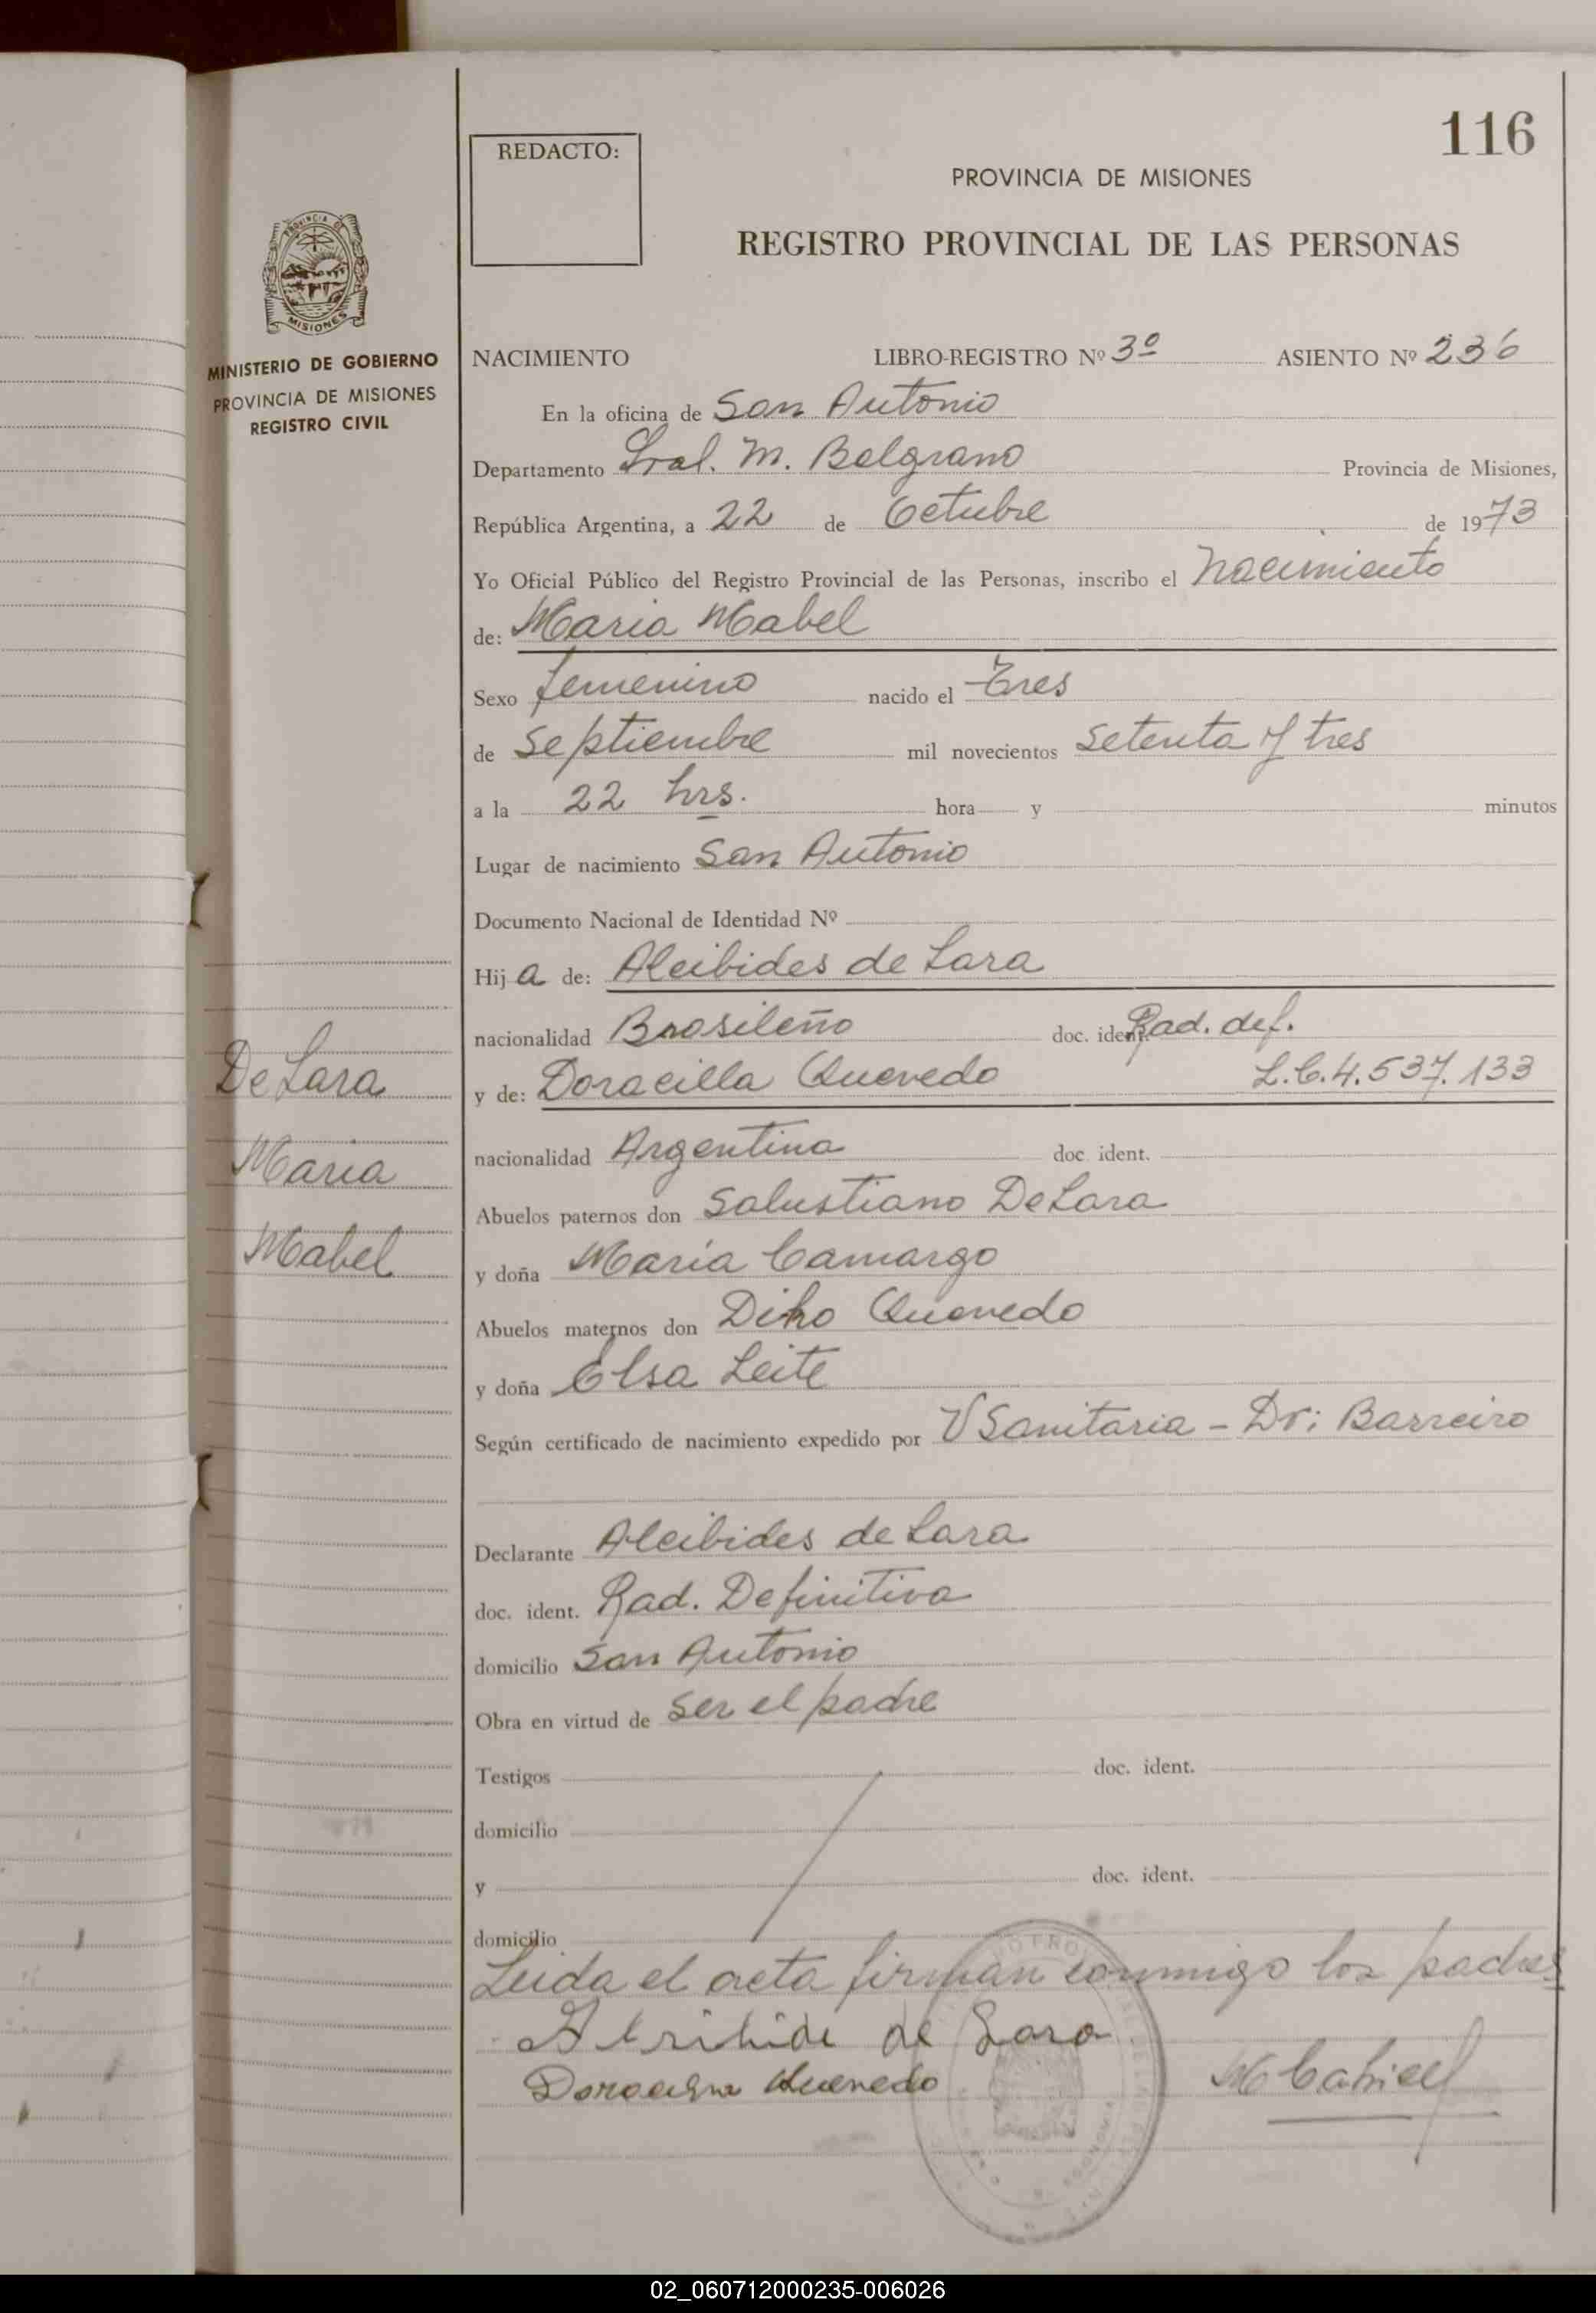 116
REDACTO:
PROVINCIA DE MISIONES
REGISTRO PROVINCIAL DE LAS PERSONAS
PROVINCIA DE
MISIONES
MINISTERIO DE GOBIERNO
PROVINCIA DE MISIONES
REGISTRO CIVIL
NACIMIENTO LIBRO-REGISTRO Nº 3º ASIENTO Nº 236
En la oficina de San Antonio
Departamento Gral. M. Belgrano Provincia de Misiones,
República Argentina, a 22 de Octubre de 1973
Yo Oficial Público del Registro Provincial de las Personas, inscribo el Nacimiento
de: Maria Mabel
Sexo femenino nacido el Tres
de Septiembre mil novecientos setenta y tres
a la 22 hrs. hora y minutos
Lugar de nacimiento San Antonio
Documento Nacional de Identidad Nº
Hija de: Alcibides de Lara
nacionalidad Brasileño doc. ident. Rad. def.
y de: Doracilla Quevedo L.C.4.537.133
nacionalidad Argentina doc. ident.
Abuelos paternos don Salustiano De Lara
y doña María Camargo
Abuelos maternos don Quevedo
y doña Elsa Leite
Según certificado de nacimiento expedido por U Sanitaria - Dr: Barreiro
Declarante Alcibides de Lara
doc. ident. Rad. Definitiva
domicilio San Antonio
Obra en virtud de ser el padre
Testigos doc. ident.
domicilio
y doc. ident.
domicilio
Leida el acta firman conmigo los padres
de Lara
Quevedo
De Lara
Maria
Mabel
02_060712000235-006026